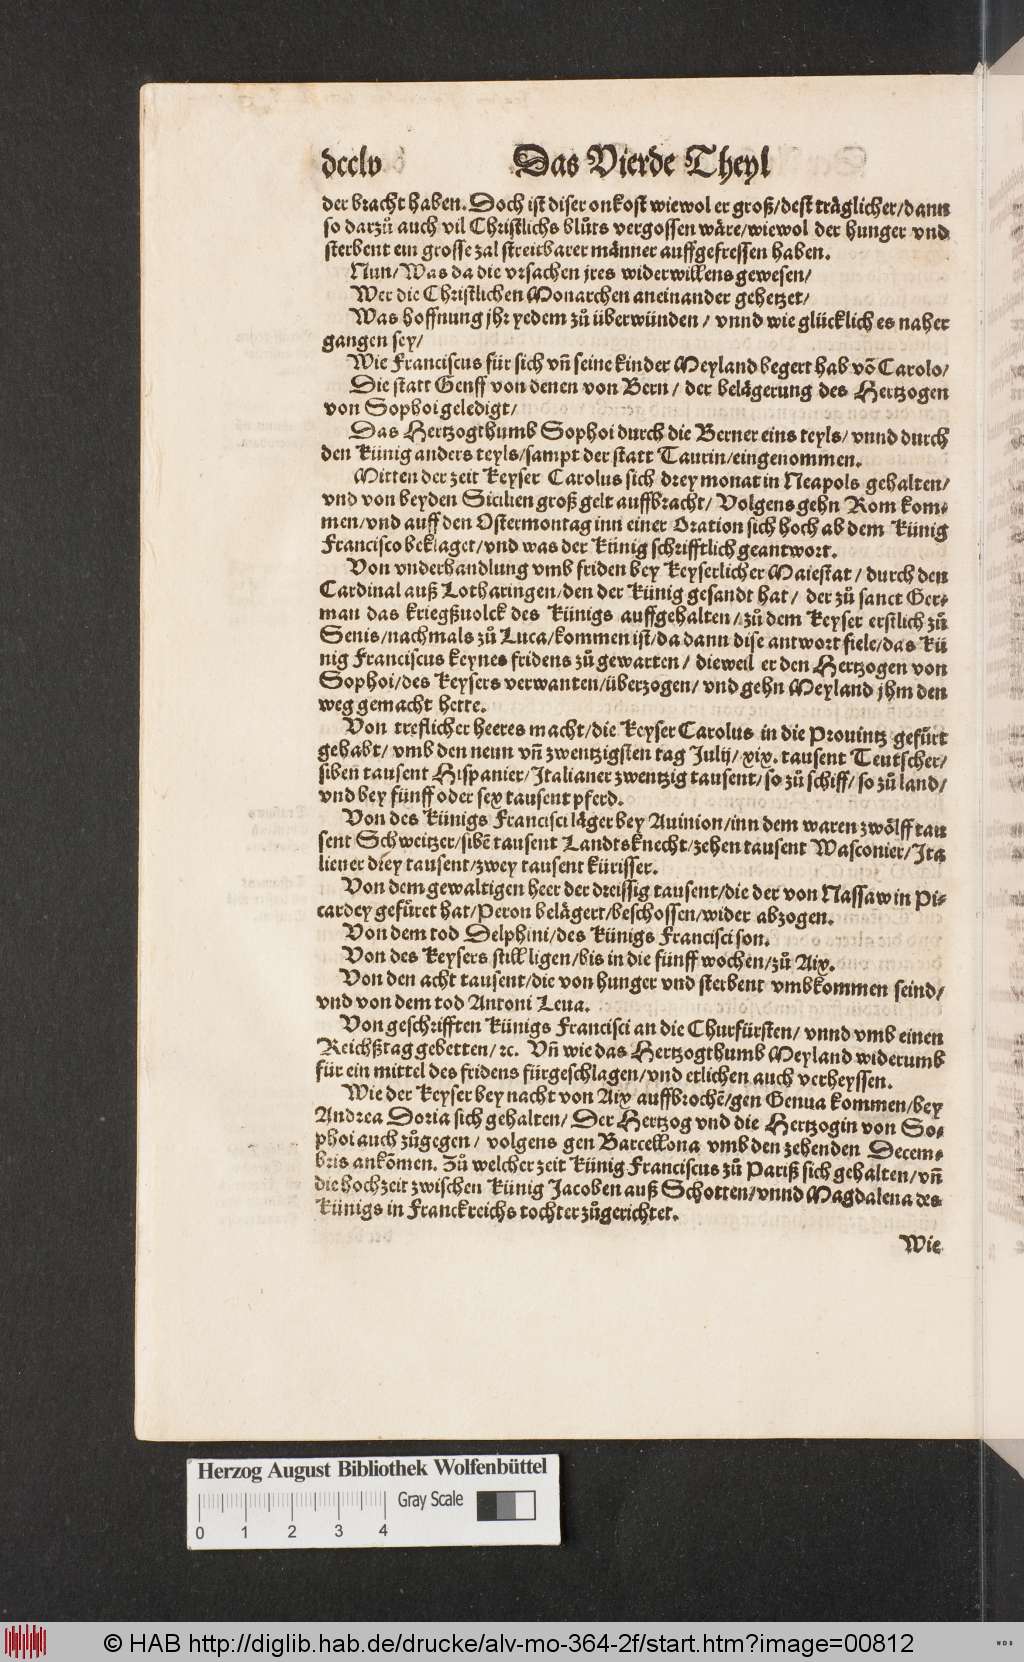 dcclv Das Vierde Theyl
der bracht haben. Doch ist diser onkost wiewol er groß/dest träglicher/dann
so darzů auch vil Christlichs blůts vergossen wäre/wiewol der hunger vnd
sterbent ein grosse zal streitbarer männer auffgefressen haben.
Nun/Was da die vrsachen jres widerwillens gewesen/
Wer die Christlichen Monarchen aneinander gehetzet/
Was hoffnung jhr yedem zů überwünden / vnnd wie glücklich es naher
gangen sey/
Wie Franciscus für sich vñ seine kinder Meyland begert hab võ Carolo/
Die statt Genff von denen von Bern / der belägerung des Hertzogen
von Sophoi geledigt/
Das Hertzogthumb Sophoi durch die Berner eins teyls/ vnnd durch
den Künig anders teyls/sampt der statt Taurin/eingenommen.
Mitten der zeit Keyser Carolus sich drey monat in Neapols gehalten/
vnd von beyden Sicilien groß gelt auffbracht/ Volgens gehn Rom kom⸗
men/vnd auff den Ostermontag inn einer Oration sich hoch ab dem Künig
Francisco beklaget/vnd was der Künig schrifftlich geantwort.
Von vnderhandlung vmb friden bey Keyserlicher Maiestat / durch den
Cardinal auß Lotharingen/den der Künig gesandt hat / der zů sanct Ger⸗
man das kriegßuolck des Künigs auffgehalten / zů dem Keyser erstlich zů
Senis/nachmals zů Luca/kommen ist/da dann dise antwort fiele/das Kü
nig Franciscus keynes fridens zů gewarten / dieweil er den Hertzogen von
Sophoi/des Keysers verwanten/überzogen/ vnd gehn Meyland jhm den
weg gemacht hette.
Von treflicher heeres macht/die Keyser Carolus in die Prouintz gefürt
gehabt/ vmb den neun vñ zwentzigsten tag Julij/ xix. tausent Teutscher/
siben tausent Hispanier/Italianer zwentzig tausent/so zů schiff/so zů land/
vnd bey fünff oder sex tausent pferd.
Von des Künigs Francisci läger bey Auinion/inn dem waren zwölff tau
sent Schweitzer/sibẽ tausent Landtsknecht/zehen tausent Wasconier/Ita
liener drey tausent/zwey tausent kürisser.
Von dem gewaltigen heer der dreissig tausent/die der von Nassaw in Pi⸗
cardey gefüret hat/Peron belägert/beschossen/wider abzogen.
Von dem tod Delphini/des Künigs Francisci son.
Von des Keysers still ligen/bis in die fünff wochen/zů Aix.
Von den acht tausent/die von hunger vnd sterbent vmbkommen seind/
vnd von dem tod Antoni Leua.
Von geschrifften Künigs Francisci an die Churfürsten/ vnnd vmb einen
Reichßtag gebetten/ ꝛc. Vñ wie das Hertzogthumb Meyland widerumb
für ein mittel des fridens fürgeschlagen/vnd etlichen auch verheyssen.
Wie der Keyser bey nacht von Aix auffbrochẽ/gen Genua kommen/bey
Andrea Doria sich gehalten/ Der Hertzog vnd die Hertzogin von So⸗
phoi auch zůgegen / volgens gen Barcellona vmb den zehenden Decem⸗
bris ankõmen. Zů welcher zeit Künig Franciscus zů Pariß sich gehalten/vñ
die hochzeit zwischen Künig Jacoben auß Schotten/vnnd Magdalena des
Künigs in Franckreichs tochter zůgerichtet.
Wie
Herzog August Bibliothek Wolfenbüttel
Gray Scale
0 1 2 3 4
© HAB http://diglib.hab.de/drucke/alv-mo-364-2f/start.htm?image=00812